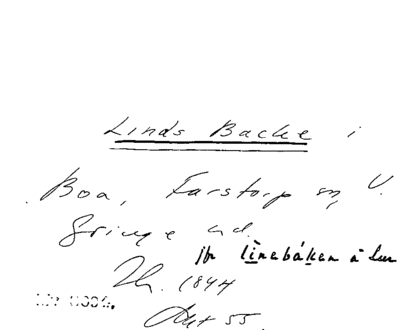 Linds Backe i
Boa, Farstorp sn, V.
Göinge hd.
jfr linebáken á lur
Th. 1844
Akt 55